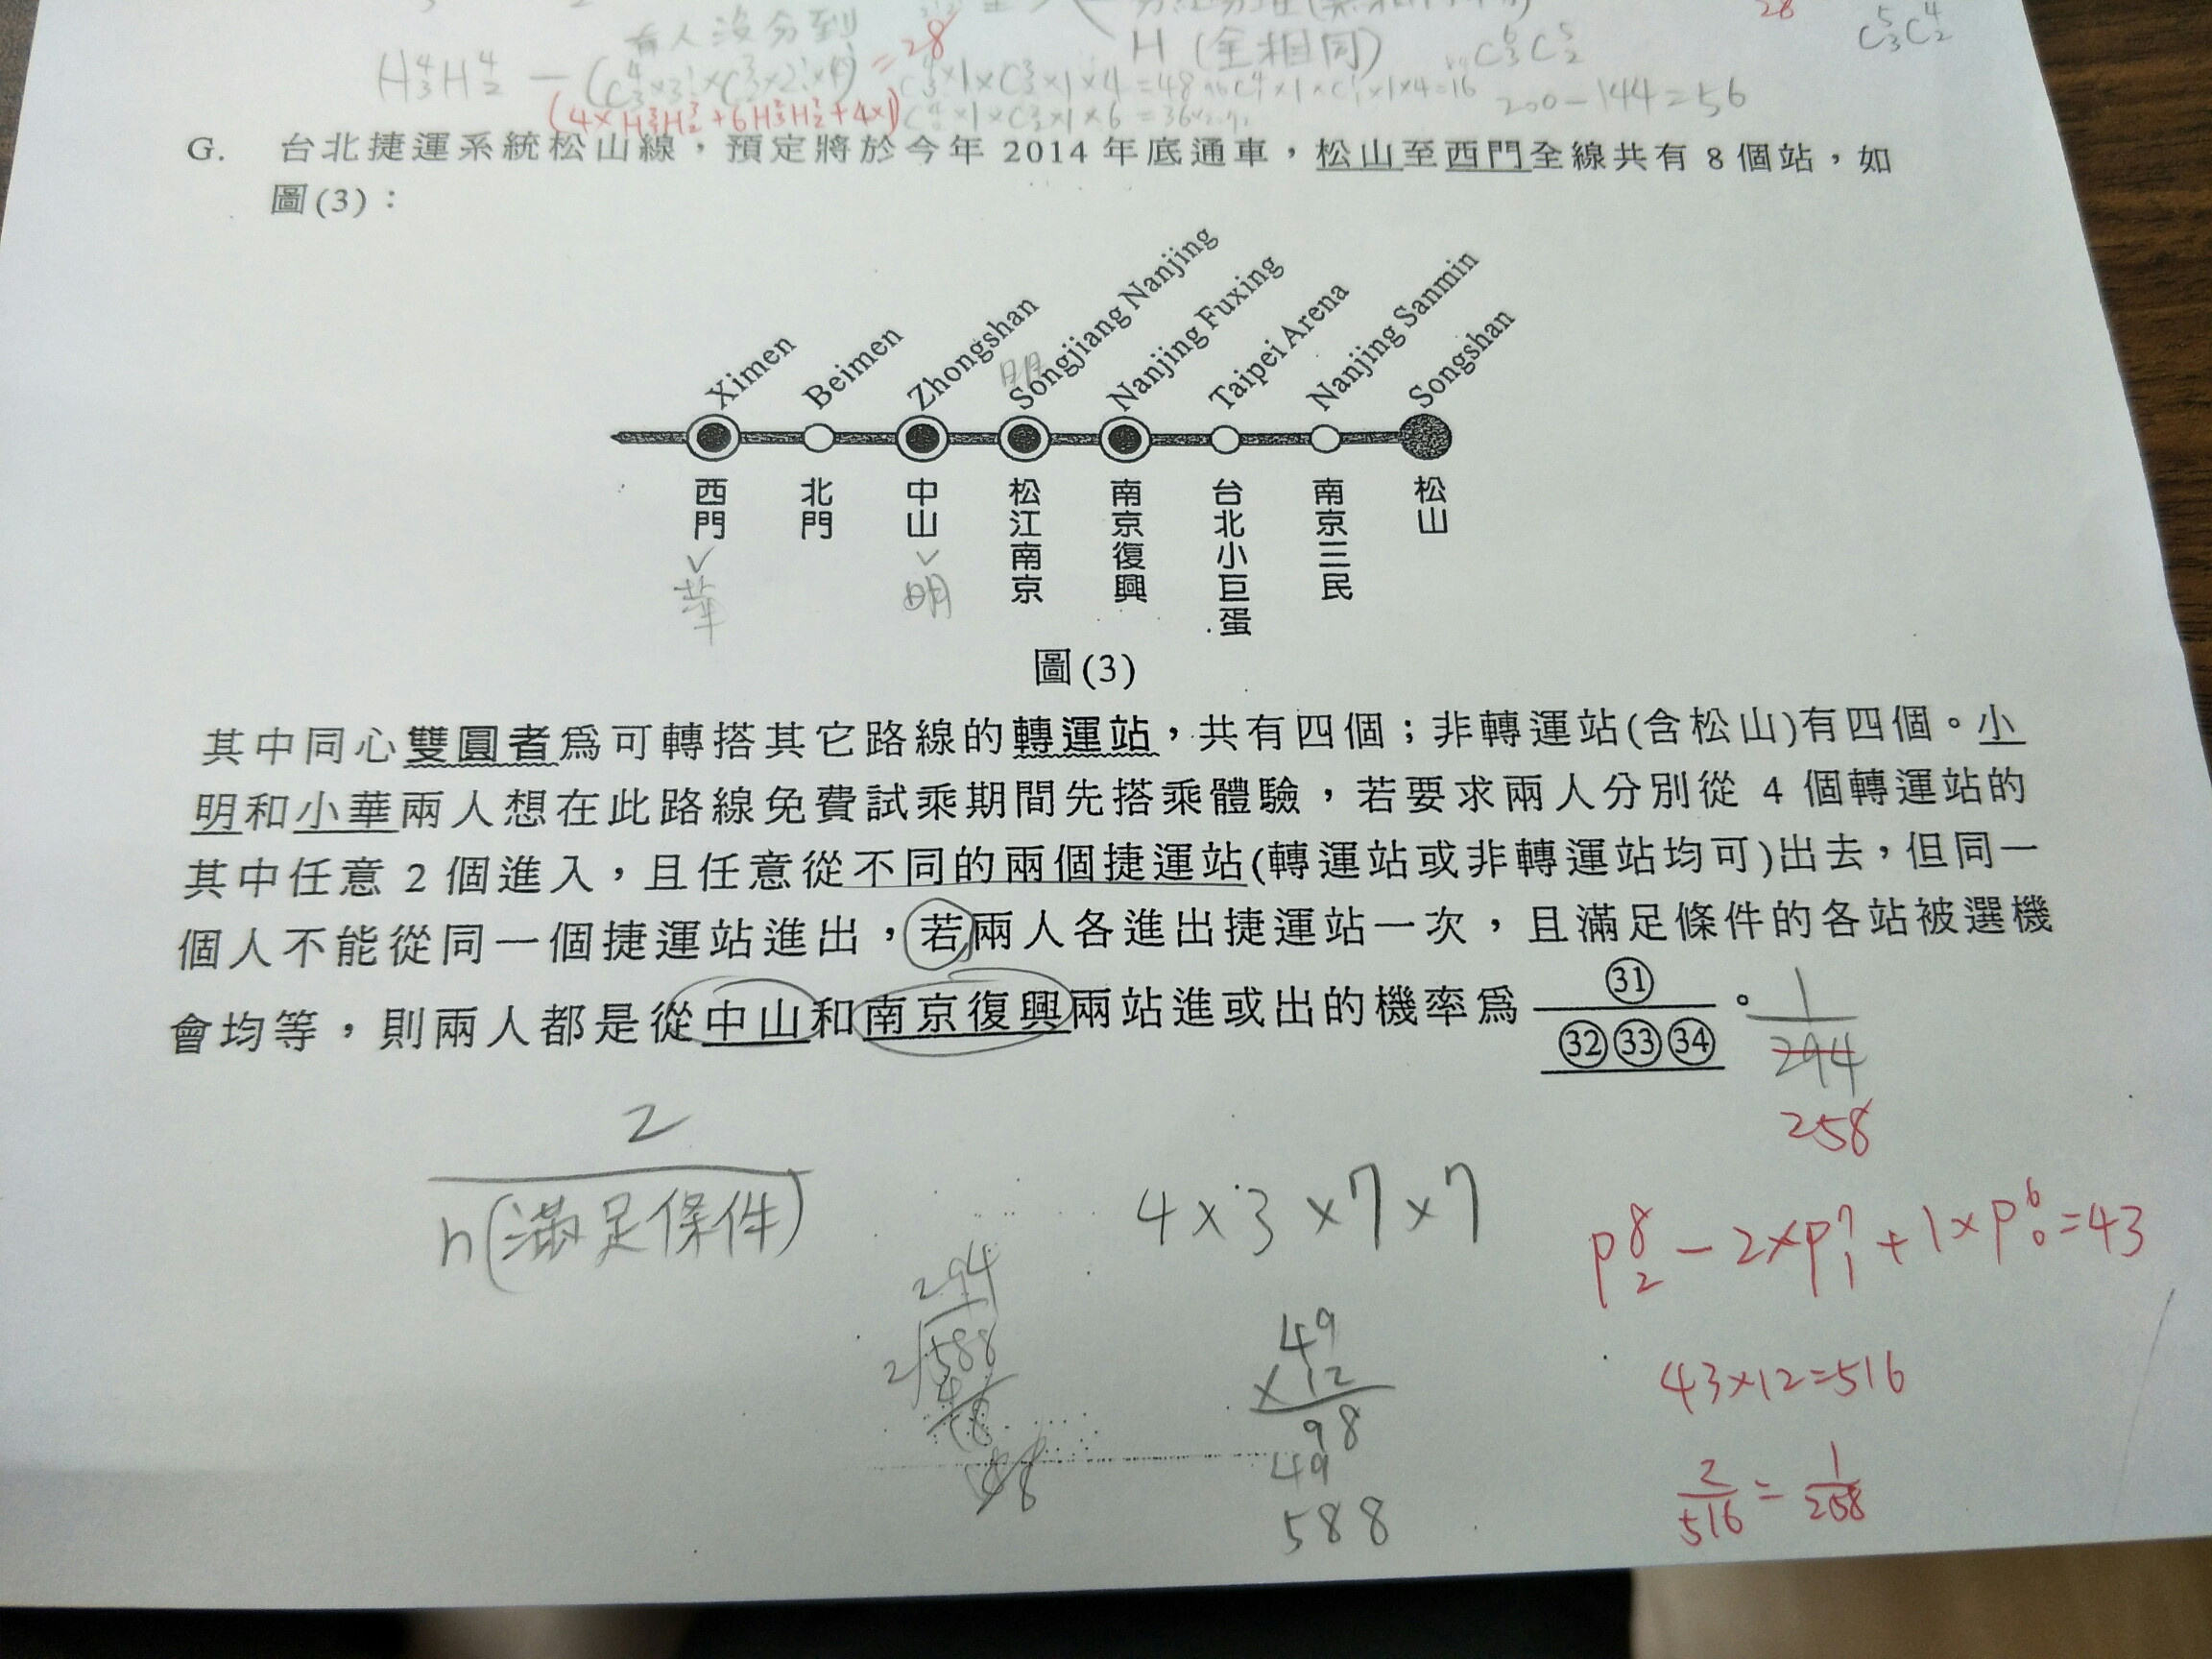 有人沒分到
H (全相同)
200-144=56
G. 台北捷運系統松山線，預定將於今年 2014 年底通車，松山至西門全線共有 8 個站，如
圖(3)：
Ximen
Beimen
Zhongshan
Songjiang Nanjing
Nanjing Fuxing
Taipei Arena
Nanjing Sanmin
Songshan
明
西門
北門
中山
松江南京
南京復興
台北小巨蛋
南京三民
松山
華
明
圖(3)
其中同心雙圓者為可轉搭其它路線的轉運站，共有四個；非轉運站(含松山)有四個。小
明和小華兩人想在此路線免費試乘期間先搭乘體驗，若要求兩人分別從 4 個轉運站的
其中任意 2 個進入，且任意從不同的兩個捷運站(轉運站或非轉運站均可)出去，但同一
個人不能從同一個捷運站進出，若兩人各進出捷運站一次，且滿足條件的各站被選機
會均等，則兩人都是從中山和南京復興兩站進或出的機率為 ㉛
㉜㉝㉞
。
1
294
258
2
n(滿足條件)
4×3×7×7
P⁸₂-2×P⁷₁+1×P⁶₀=43
294
2/588
49
×12
98
49
588
43×12=516
2/516=1/258